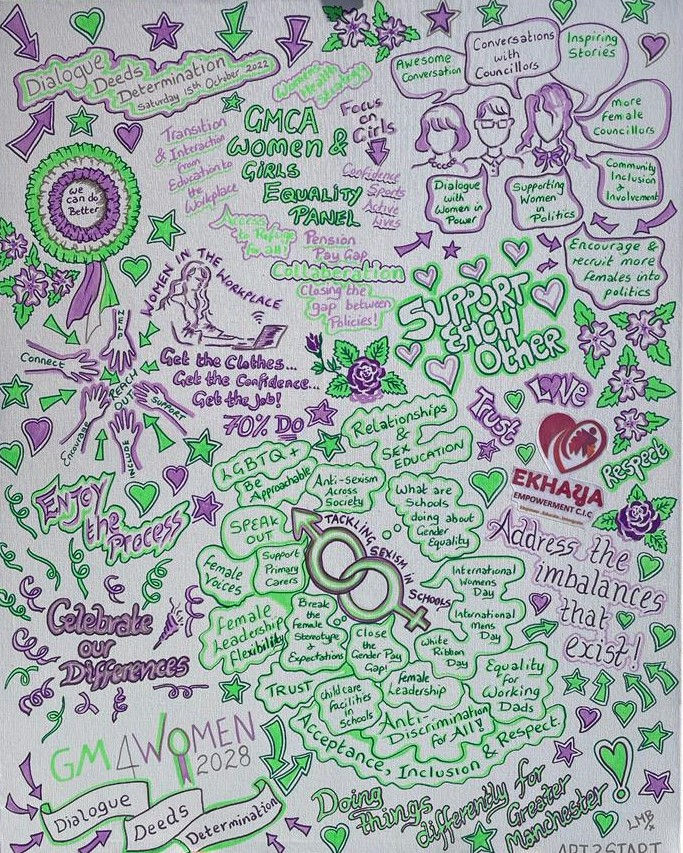 Dialogue
Deeds
Determination
Saturday 15th October 2022
Women's
Health
Strategy
Transition
& Interaction
from
Education to
the
Workplace
GMCA
Women &
Girls
Equality
Panel
Focus
on
Girls
Confidence
Sports
Active
Lives
Access
to Refuge
for all!
Pension
Pay Gap
Collaboration
Closing the
gap between
Policies!
Awesome
Conversation
Conversations
with
Councillors
Inspiring
Stories
More
Female
Councillors
Community
Inclusion
&
Involvement
Dialogue
with
Women in
Power
Supporting
Women
in
Politics
Encourage &
recruit more
females into
politics
We
can do
Better
WOMEN IN THE WORKPLACE
Get the Clothes...
Get the Confidence...
Get the Job!
70% Do
HELP
Connect
REACH
OUT
SUPPORT
Encourage
Support
Each
Other
Love
Trust
Respect
EKHAYA
EMPOWERMENT C.I.C
Enjoy
the
Process
Relationships
&
Sex
EDUCATION
LGBTQ+
Be
Approachable
Anti-sexism
Across
Society
What are
Schools
doing about
Gender
Equality
SPEAK
OUT
TACKLING SEXISM IN SCHOOLS
Female
Voices
Support
Primary
Carers
International
Womens
Day
International
Mens
Day
Female
Leadership
Flexibility
Break
the
Female
Stereotype
&
Expectations
Close
the
Gender Pay
Gap!
White
Ribbon
Day
Equality
for
Working
Dads
TRUST
Childcare
Facilities
in
Schools
Female
Leadership
Anti-
Discrimination
for All!
Acceptance, Inclusion & Respect
Address the
imbalances
that
exist!
Celebrate
our
Differences
GM4WOMEN
2028
Dialogue
Deeds
Determination
Doing
things
differently for
Greater
Manchester
LMB
ART2START